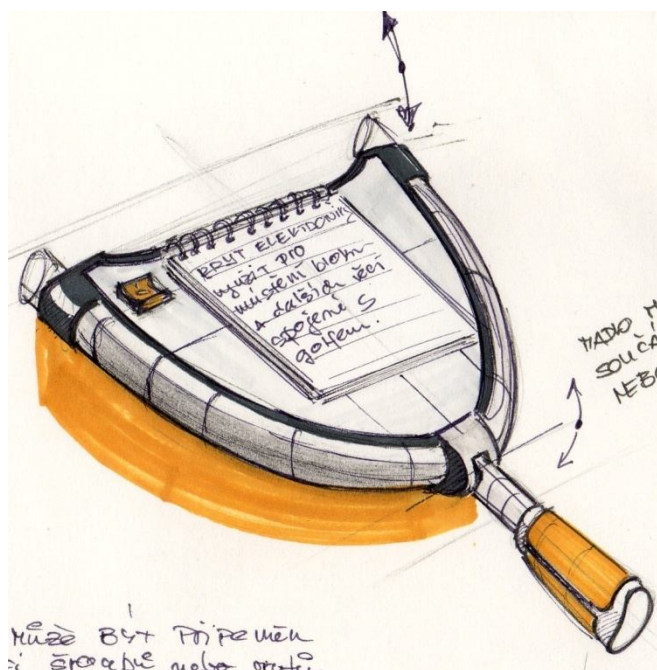 KRYT ELEKTRONIKY
využít PRO
umístění bloku
A dalších věcí
spojené S
golfem.
MADLO M
SOUČÁ
NEBO
MŮŽE BÝT PŘIPEVNĚN
nebo